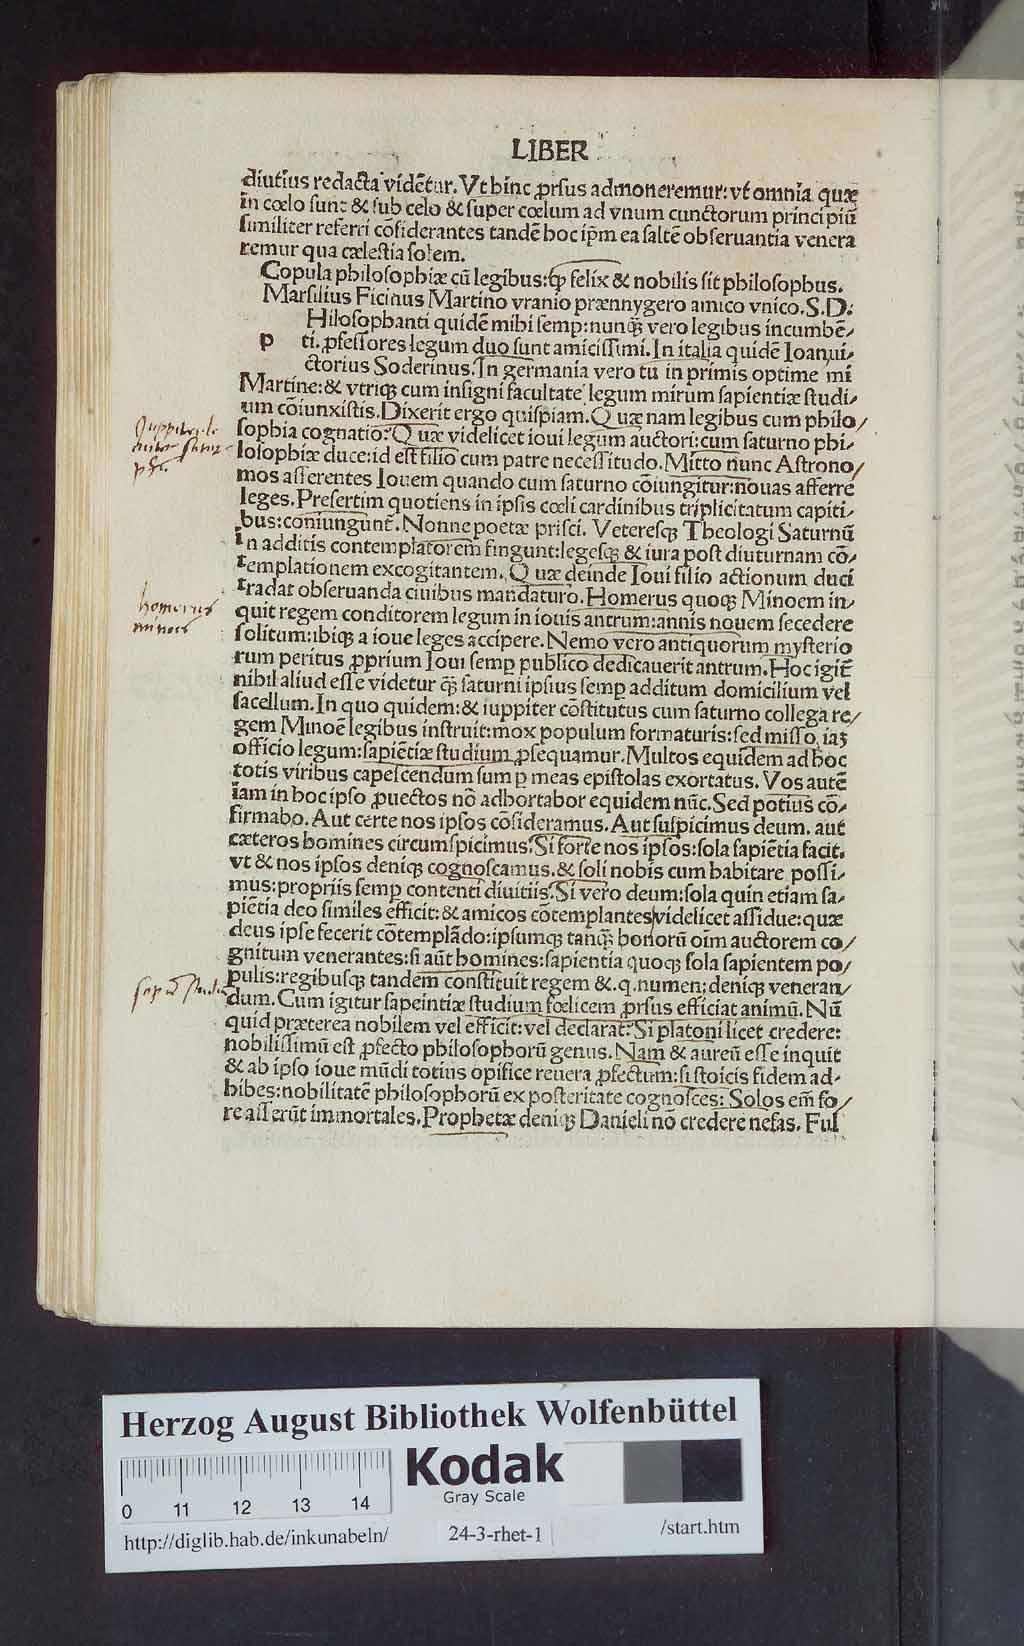 LIBER
diutius redacta vidētur. Vt hinc ꝓrsus admoneremur: vt omnia quæ
in cœlo sunt & sub celo & super cœlum ad vnum cunctorum principiū
similiter referri cōsiderantes tandē hoc ip̄m ea saltē obseruantia venera
remur qua cælestia solem.
Copula philosophiæ cū legibus: ꝙ felix & nobilis sit philosophus.
Marsilius Ficinus Martino vranio prænnygero amico vnico. S.D:
Hilosophanti quidē mihi semp: nunq̄ vero legibus incumbē/
p ti. ꝓfessores legum duo sunt amicissimi. In italia quidē Ioan,ui/
ctorius Soderinus. In germania vero tu in primis optime mi
Martine: & vtriq; cum insigni facultate legum mirum sapientiæ studi/
um cōiunxistis. Dixerit ergo quispiam. Quæ nam legibus cum philo/
sophia cognatio? Quæ videlicet ioui legum auctori: cum saturno phi/
losophiæ duce: id est filio cum patre necessitudo. Mitto nunc Astrono/
mos asserentes Iouem quando cum saturno cōiungitur: nouas afferre
leges. Presertim quotiens in ipsis cœli cardinibus triplicitatum capiti/
bus: coniungunt̄. Nonne poetæ prisci. Veteresq; Theologi Saturnū
In additis contemplatorem fingunt: legesq; & iura post diuturnam cō/
templationem excogitantem. Quæ deinde Ioui filio actionum duci
tradat obseruanda ciuibus mandaturo. Homerus quoq; Minoem in/
quit regem conditorem legum in iouis antrum: annis nouem secedere
solitum: ibiq; a ioue leges accipere. Nemo vero antiquorum mysterio
rum peritus ꝓprium Ioui semꝑ publico dedicauerit antrum. Hoc igit̄
nihil aliud esse videtur q̄ saturni ipsius semꝑ additum domicilium vel
sacellum. In quo quidem: & iuppiter cōstitutus cum saturno collega re/
gem Minoē legibus instruit: mox populum formaturis: sed misso iaꝫ
officio legum: sapiētiæ studium ꝓsequamur. Multos equidem ad hoc
totis viribus capescendum sum ꝑ meas epistolas exortatus. Vos autē
iam in hoc ipso ꝓuectos nō adhortabor equidem nūc. Sed potius cō/
firmabo. Aut certe nos ipsos cōsideramus. Aut suspicimus deum. aut
cæteros homines circumspicimus. Si forte nos ipsos: sola sapiētia facit.
vt & nos ipsos deniq; cognoscamus. & soli nobis cum habitare possi/
mus: propriis semꝑ contenti diuitiis. Si vero deum: sola quin etiam sa/
piētia deo similes efficit: & amicos cōtemplantes videlicet assidue: quæ
deus ipse fecerit cōtemplādo: ipsumq; tanq̄ bonorū oīm auctorem co/
gnitum venerantes: si aūt homines: sapientia quoq; sola sapientem po/
pulis: regibusq; tandem constituit regem &. q. numen; deniq; veneran/
dum. Cum igitur sapeintiæ studium fœlicem ꝓrsus efficiat animū. Nū
quid præterea nobilem vel efficit: vel declarat? Si platoni licet credere:
nobilissimū est ꝓfecto philosophorū genus. Nam & aureū esse inquit
& ab ipso ioue mūdi totius opifice reuera ꝓfectum: si stoicis fidem ad/
hibes: nobilitatē philosophorū ex posteritate cognosces: Solos em̄ fo/
re asserūt immortales. Prophetæ deniq; Danieli nō credere nefas. Ful
homerus
minois
Herzog August Bibliothek Wolfenbüttel
Kodak
Gray Scale
0 11 12 13 14
http://diglib.hab.de/inkunabeln/ 24-3-rhet-1 /start.htm